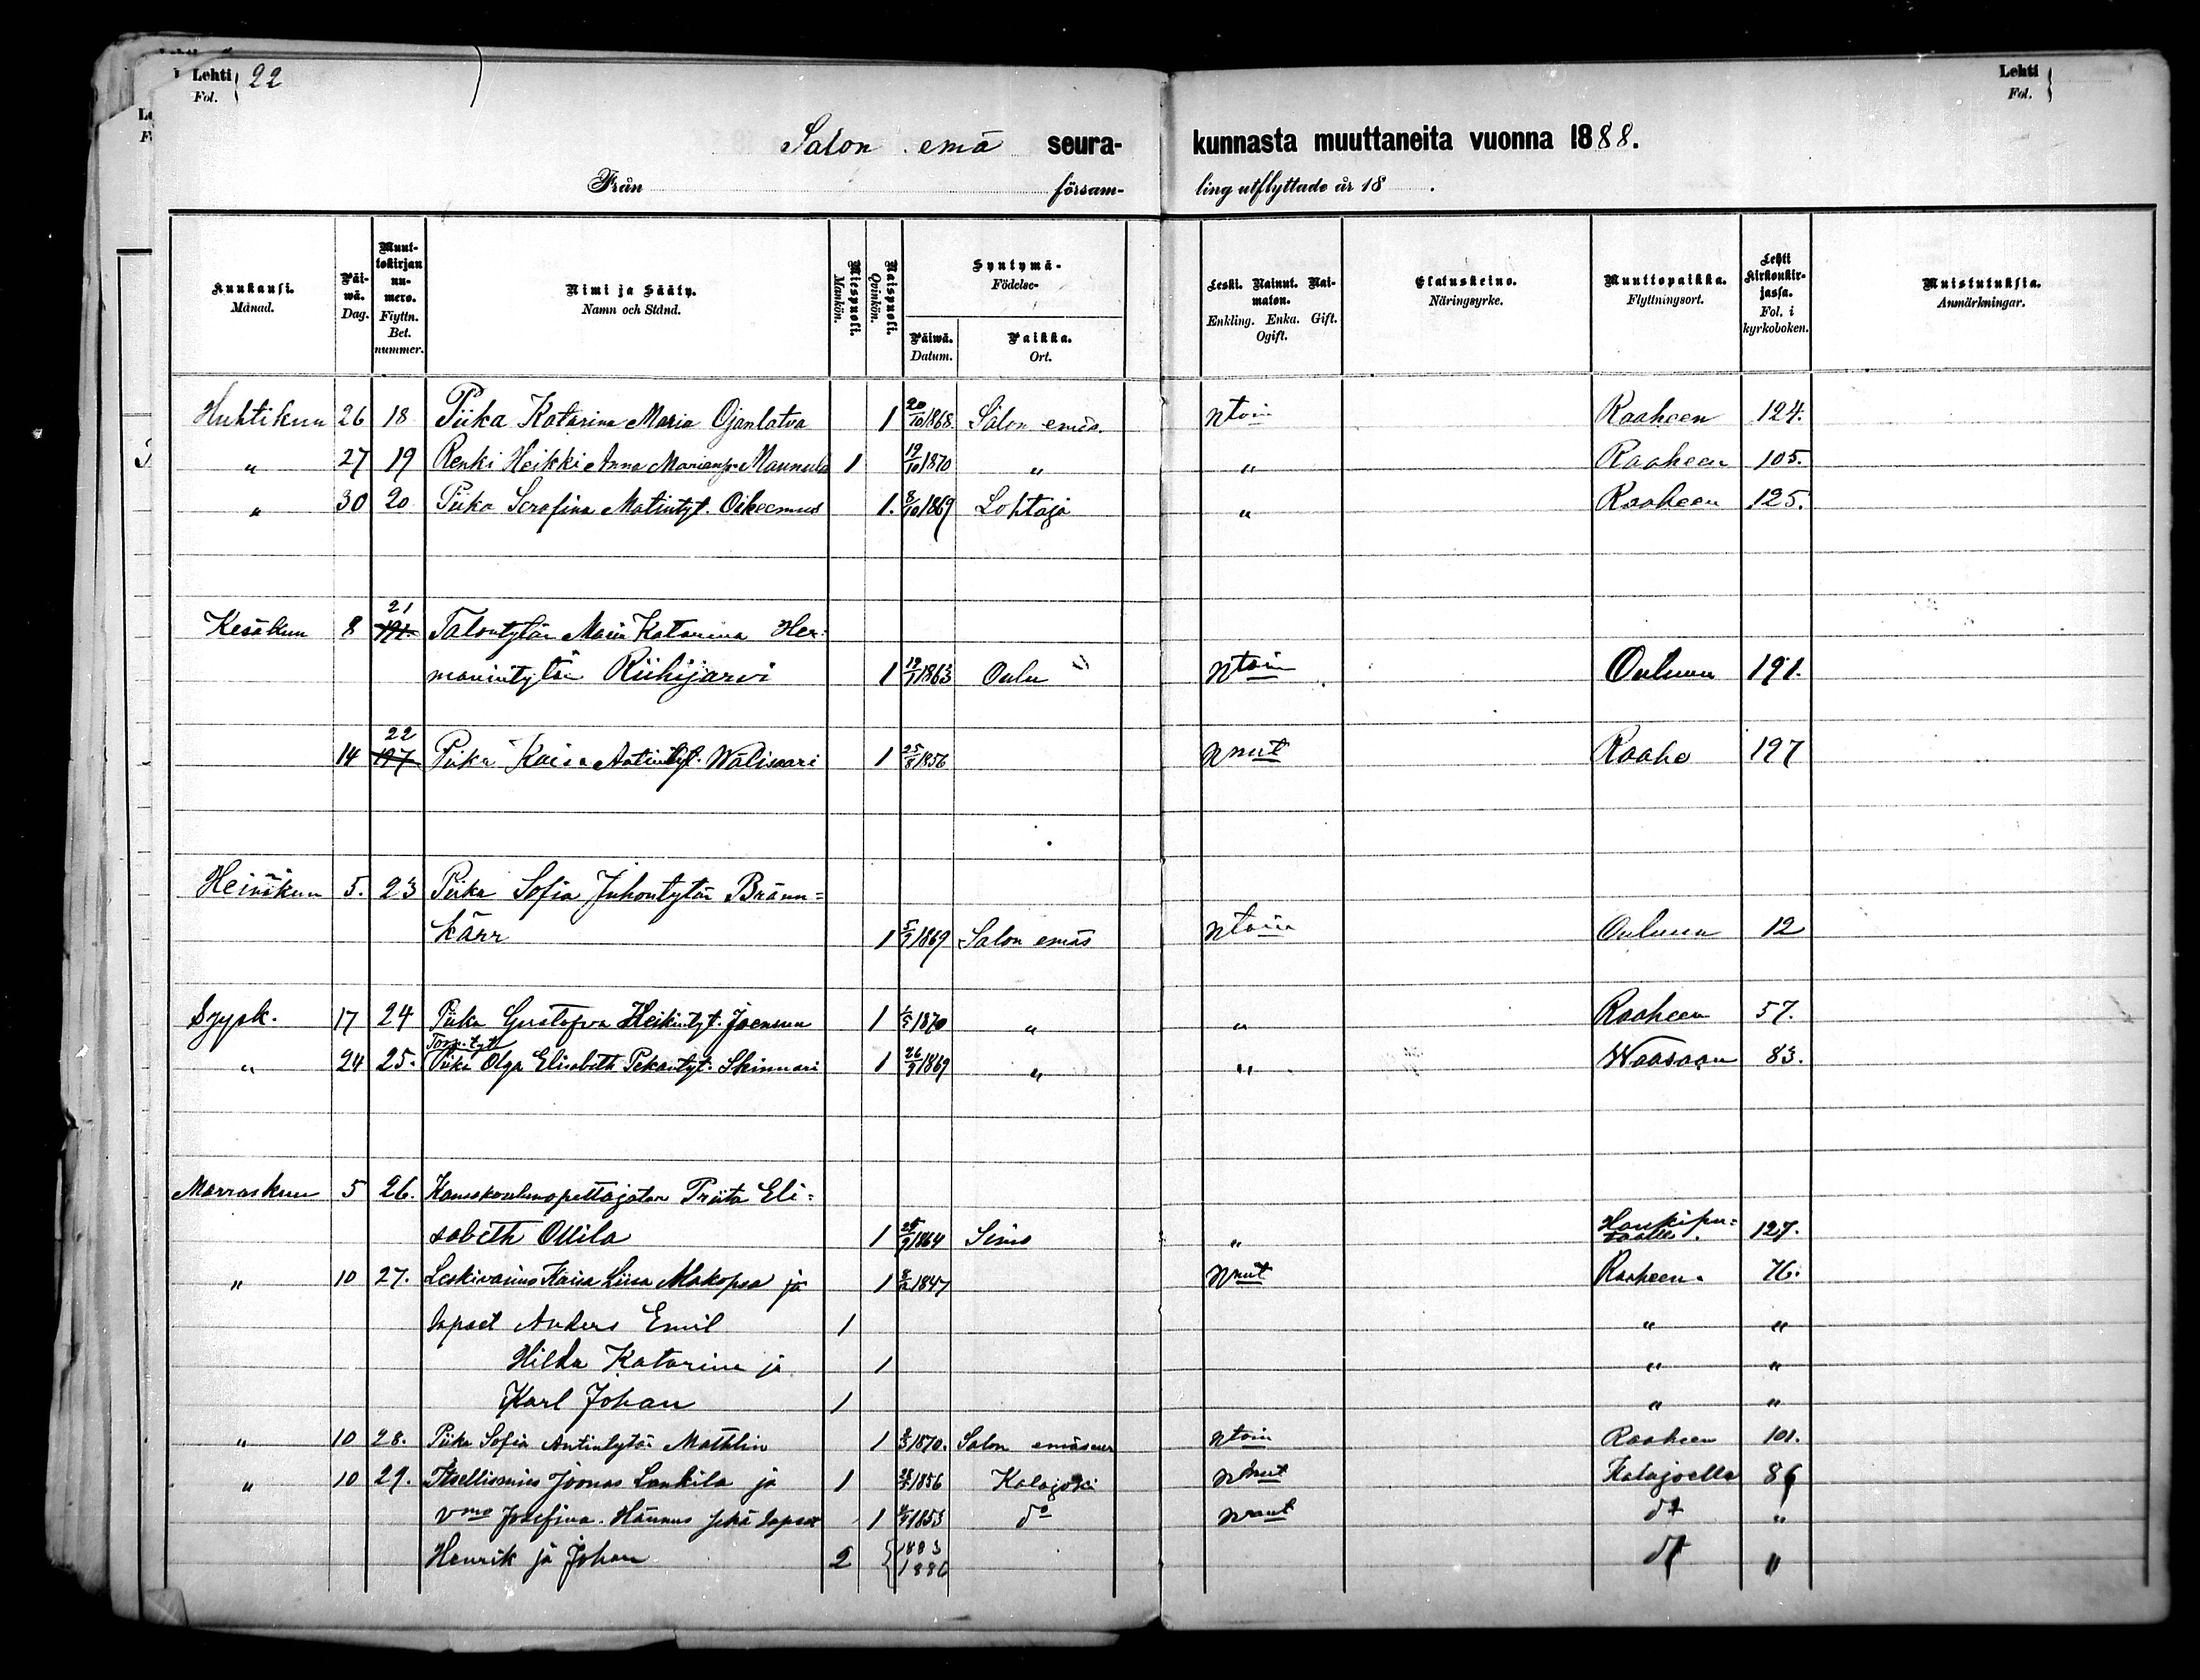 Lehti 22 Lehti
Fol. Fol.
Salon emä seura- kunnasta muuttaneita vuonna 1888.
Från försam- ling utflyttade år 18 .
Kuukausi. Månad. Päiwä. Dag. Muuttokirjan numero. Flyttn. Bet. nummer. Nimi ja Sääty. Namn och Stånd. Miespuoli. Mankön. Naispuoli. Qvinkön. Syntymä- Födelse- Päiwä. Datum. Paikka. Ort. Leski. Nainut. Naimaton. Enkling. Enka. Gift. Ogift. Elatuskeino. Näringsyrke. Muuttopaikka. Flyttningsort. Lehti kirkonkirjassa. Fol. i kyrkoboken. Muistutuksia. Anmärkningar.
Huhtikuu 26 18 Piika Katarina Maria Ojanlatva 1 20/10 1868. Salon emäs. Ntoin Raaheen 124.
" 27 19 Renki Heikki Anna Marianp. Mannula 1 19/10 1870 " " Raaheen 105.
" 30 20 Piika Serafina Matintyt. 1. 8/10 1869 Lohtaja " Raaheen 125.
Kesäkuu 8 21 191. Talontytär Maria Katarina Her-
manintytär Riihijärvi 1 1863 Oulu Ntoin Ouluun 191.
14 22 197 Piika Kaisa Antintyt. Wälisaari 1 25/8 1856 Nnut Raahe 197
Heinäkuu 5. 23 Piika Sofia Juhontytär Bränn=
kärr 1 5/9 1869 Salon emäs Ntoin Ouluun 12
Syysk. 17 24 Piika Gustafva Heikintyt. Joensuu 1 1870 " " Raaheen 57.
Torp. tyt
" 24 25. Piika Olga Elisabeth Pekantyt. Skinnari 1 26/9 1869 " " Waasaan 83.
Marraskuu 5 26. Kansakoulunopettajatar Priita Eli=
sabeth Ollila 1 1864 Simo " Haukipu=
taalle. 127.
" 10 27. Leskivaimo Kaisa Liisa Makopsa ja 1 1847 Nnut Raaheen. 76.
lapset Anders Emil 1 " "
Hilda Katarina ja 1 " "
Karl Johan 1 " "
" 10 28. Piika Sofia Antintytär Mathlin 1 1870. Salon emäseur Ntoin Raaheen 101.
" 10 29. Itsellismies Joonas Lankila ja 1 1856 Kalajoki Nnut Kalajoelle 86
vmo Josefina Hannus sekä lapset 1 1853 do Nnut do "
Henrik ja Johan 2 1883
1886 do "